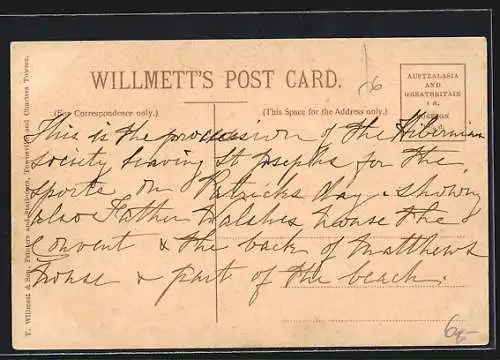 WILLMETT'S POST CARD.
AUSTRALASIA
AND
GREAT BRITAIN
1d.
FOREIGN
(For Correspondence only.)
(This Space for the Address only.)
This is the procession of the Hibernian
society leaving St Josephs for the
sports on Patricks day. showing
also Father Walshes house the
Convent & the back of Matthews
house & part of the beach.
T. Willmett & Son, Printers and Stationers, Townsville and Charters Towers.